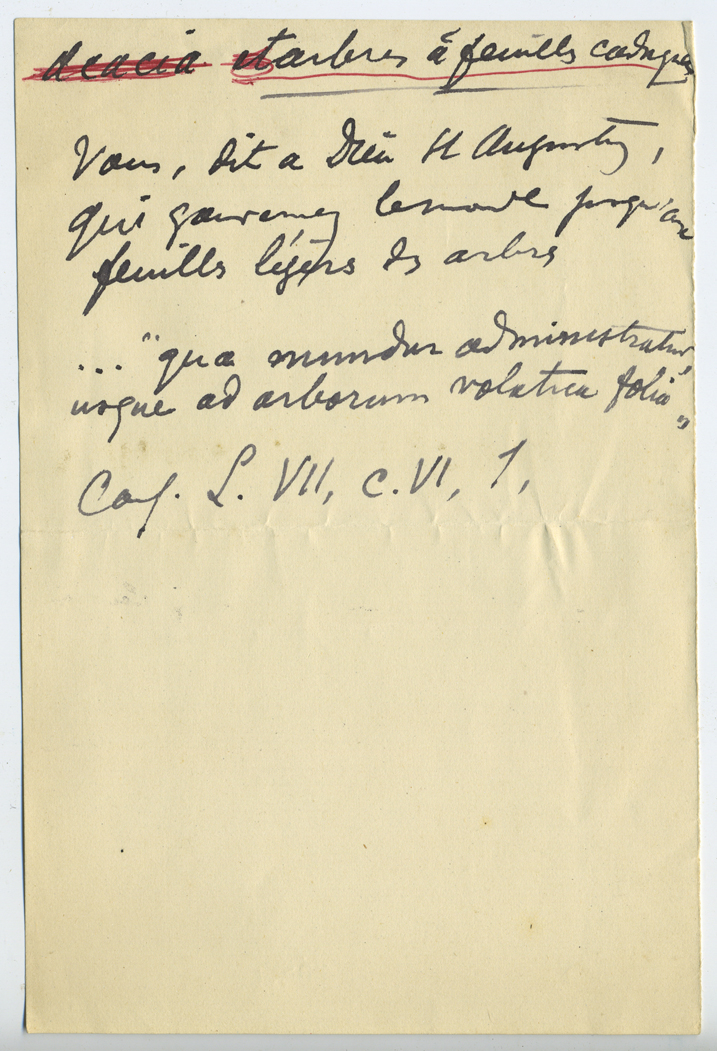 acacia et arbres à feuilles caduques
Vous, dit a Dieu St Augustin,
qui gouvernez le monde jusqu'aux
feuilles légères des arbres
... "qua mundus administratur,
usque ad arborum volatica folia"
Conf. L. VII, c. VI, 1,